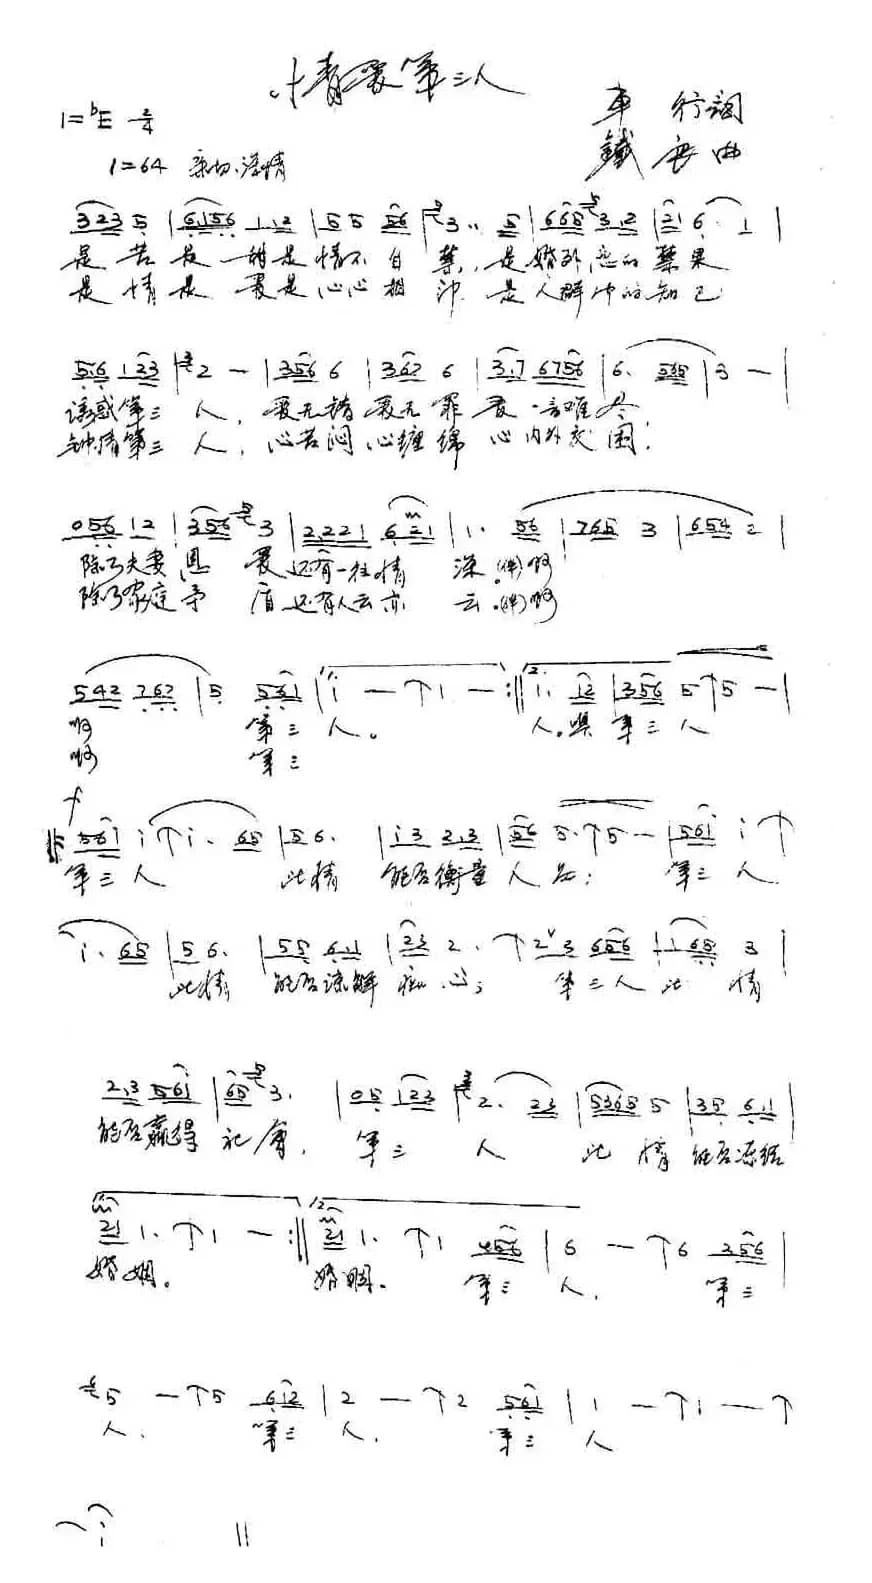 情爱第三人
1=ᵇE 2/4
车 行词
铁 每曲
1=64 亲切、深情
3 2 3 5 | 6 1 5 6 1 1 2 | 5 5 5 6 | 3 . . 5 | 6 6 5 3 2 | 2 1 6 . 1 |
是 苦 是 甜是情不自禁,是婚外恋的禁果
是 情 是 爱是心心相印 是人群中的知己
5 6 1 2 3 | 2 — | 3 5 6 6 | 3 6 2 6 | 3 . 7 6 7 5 6 | 6 . 5 6 5 | 3 — |
诱惑第三人,爱无错爱无罪爱 言难尽
钟情第三人,心苦闷心缠绵心内外交困;
0 5 6 1 2 | 3 5 6 3 | 2 . 2 2 1 6 2 1 | 1 . 5 6 | 7 6 5 3 | 6 5 4 2 |
除了夫妻恩爱还有一往情深。(伴)啊
除了家庭矛盾还有人云亦云。(伴)啊
5 4 2 7 6 2 | 5 5 6 1 | 1 — ↑ 1 — :‖ 1 . 1 2 | 3 5 6 5 ↑ 5 — |
啊 第三人。 人。噢第三人
啊 第三
f
5 6 1 1 ↑ 1 . 6 5 | 5 6 . | 1 3 2 . 3 | 5 6 5 . ↑ 5 — | 5 6 1 1 ↑
第三人 此情 能否衡量人品; 第三人
1 . 6 5 | 5 6 . | 5 5 6 1 | 2 3 2 . ↑ 2 ᵛ 3 6 5 6 | 1 6 5 3 |
此情 能否谅解痴心; 第三人此情
2 . 3 5 6 1 | 6 5 3 . | 0 5 1 2 3 | 2 . 2 3 | 5 3 6 5 5 | 3 5 6 . 1 |
能否赢得社会, 第三人 此情能否添给
2 1 1 . ↑ 1 — :‖ 2 1 1 . ↑ 1 5 6 | 6 — ↑ 6 2 5 6 |
婚姻。 婚姻。 第三人, 第三
5 — ↑ 5 6 1 2 | 2 — ↑ 2 5 6 1 | 1 — ↑ 1 — ↑
人, 第三人, 第三人
1 ‖